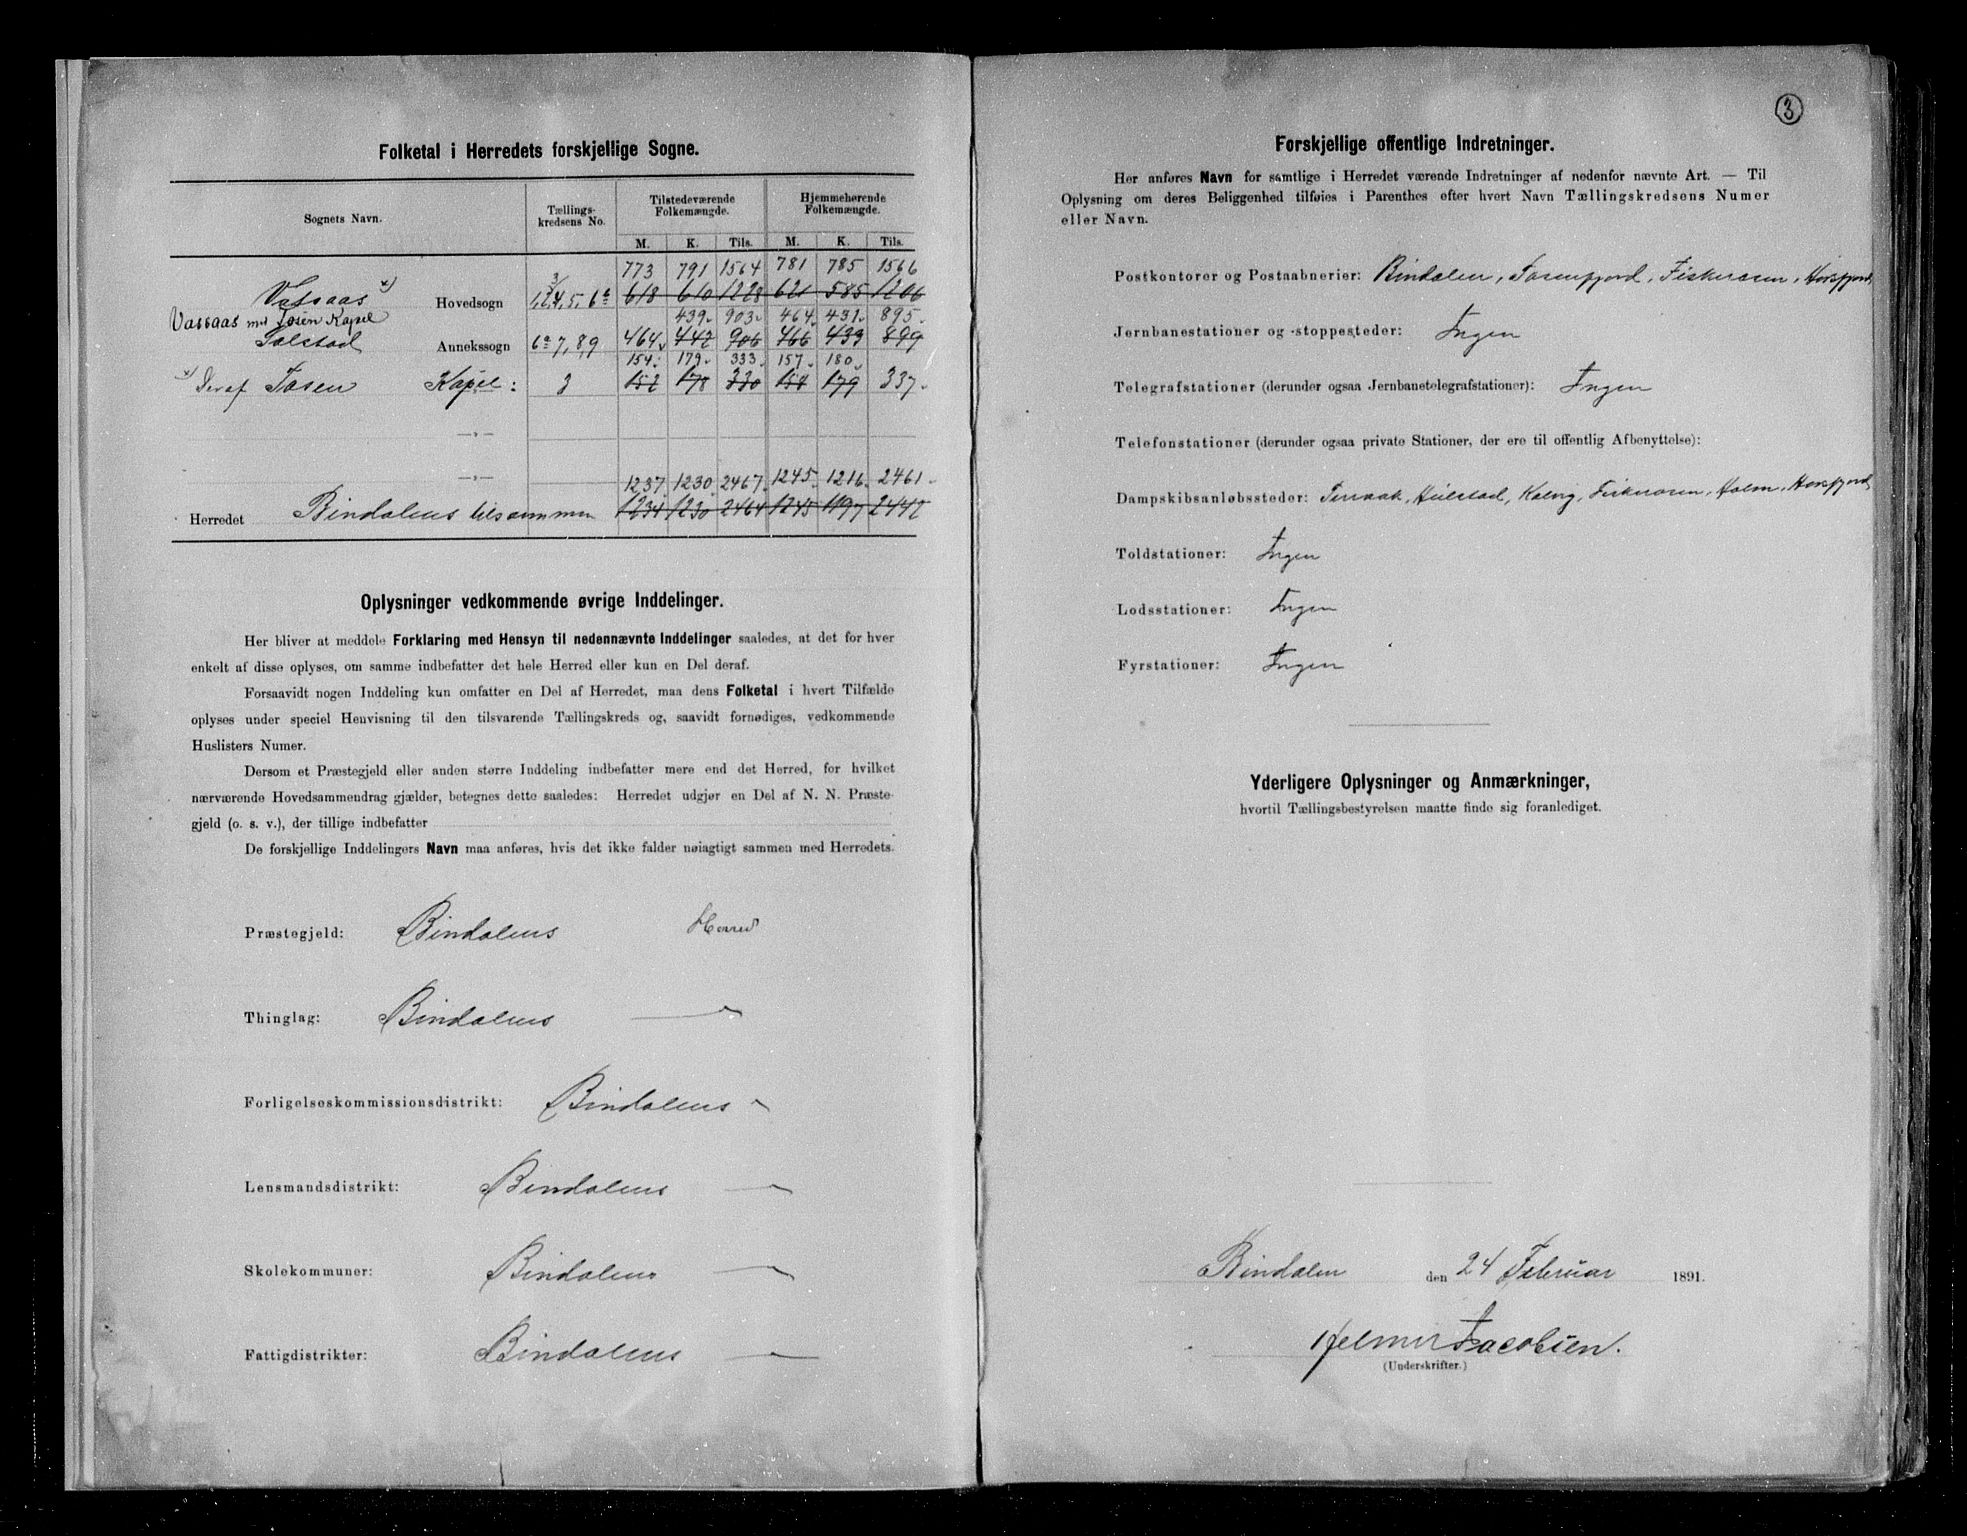 Folketal i Herredets forskjellige Sogne.
Sognets Navn. Tællings-kredsens No. Tilstedeværende Folkemængde. Hjemmehørende Folkemængde.
M. K. Tils. M. K. Tils.
773 791 1564 781 785 1566
Vassaas x) Hovedsogn 3/ 1,2,4,5,6b 618 610 1228 621 585 1206
Vassaas med Tosen Kapel
439. 903. 464. 431. 895.
Solstad Annekssogn 6a 7,8,9 464 442 906 466 433 899
154. 179. 333. 157. 180.
x) Deraf Tosen Kapel: 3 152 178 330 158 179 337.
—„—
—„—
1237. 1230. 2467. 1245. 1216. 2461.
Herredet Bindalens tilsammen 1234 1230 2464 1245 1197 2442
Oplysninger vedkommende øvrige Inddelinger.
Her bliver at meddele Forklaring med Hensyn til nedennævnte Inddelinger saaledes, at det for hver
enkelt af disse oplyses, om samme indbefatter det hele Herred eller kun en Del deraf.
Forsaavidt nogen Inddeling kun omfatter en Del af Herredet, maa dens Folketal i hvert Tilfælde
oplyses under speciel Henvisning til den tilsvarende Tællingskreds og, saavidt fornødiges, vedkommende
Huslisters Numer.
Dersom et Præstegjeld eller anden større Inddeling indbefatter mere end det Herred, for hvilket
nærværende Hovedsammendrag gjælder, betegnes dette saaledes: Herredet udgjør en Del af N. N. Præste-
gjeld (o. s. v.), der tillige indbefatter
De forskjellige Inddelingers Navn maa anføres, hvis det ikke falder nøiagtigt sammen med Herredets.
Præstegjeld: Bindalens Herred
Thinglag: Bindalens —„—
Forligelseskommissionsdistrikt: Bindalens „
Lensmandsdistrikt: Bindalens —„—
Skolekommuner: Bindalens —„—
Fattigdistrikter: Bindalens —„—
3
Forskjellige offentlige Indretninger.
Her anføres Navn for samtlige i Herredet værende Indretninger af nedenfor nævnte Art. — Til
Oplysning om deres Beliggenhed tilføies i Parenthes efter hvert Navn Tællingskredsens Numer
eller Navn.
Postkontorer og Postaabnerier: Bindalen, Tosenfjord, Fiskerosen, Horsfjord
Jernbanestationer og -stoppesteder: Ingen
Telegrafstationer (derunder ogsaa Jernbanetelegrafstationer): Ingen
Telefonstationer (derunder ogsaa private Stationer, der ere til offentlig Afbenyttelse):
Dampskibsanløbssteder: Terraak, Heilstad, Kalvig, Fiskerosen, Holm, Horsfjord
Toldstationer: Ingen
Lodsstationer: Ingen
Fyrstationer: Ingen
Yderligere Oplysninger og Anmærkninger,
hvortil Tællingsbestyrelsen maatte finde sig foranlediget.
Bindalen den 24 Februar 1891.
Helmer Jacobsen.
(Underskrifter.)